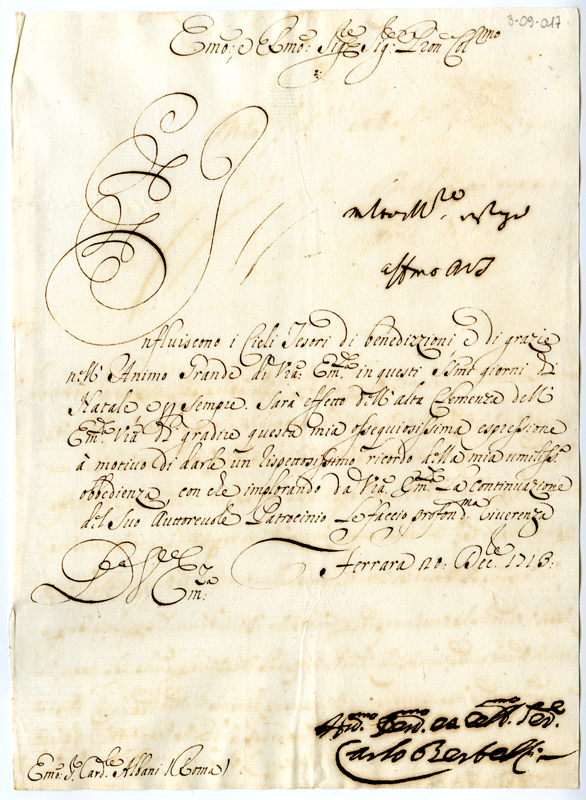 3-09-017
Emo: e Rmo: Sig.re Sig.re Pron Col.mo
Influiscono i Cieli Tesori di benedizzioni e di grazie
nell' Animo Grande di Vra: Em.za in questi SSmi giorni di
Natale e pp sempre. Sarà effetto dell' alta Clemenza dell'
Em.za Vra di gradire questa mia ossequiosissima espressione
à motivo di darle un rispettosissimo ricordo della mia umiliss.a
obbedienza, con che implorando da Vra: Em.za la Continuazione
del Suo Auttorevole Patrocinio Le faccio profond.ma riverenza
Di V.ra Em.za: Ferrara 20: Dec.re 1713:
Carlo Bertelli
Emo: S.r Card.le Albani (Roma)